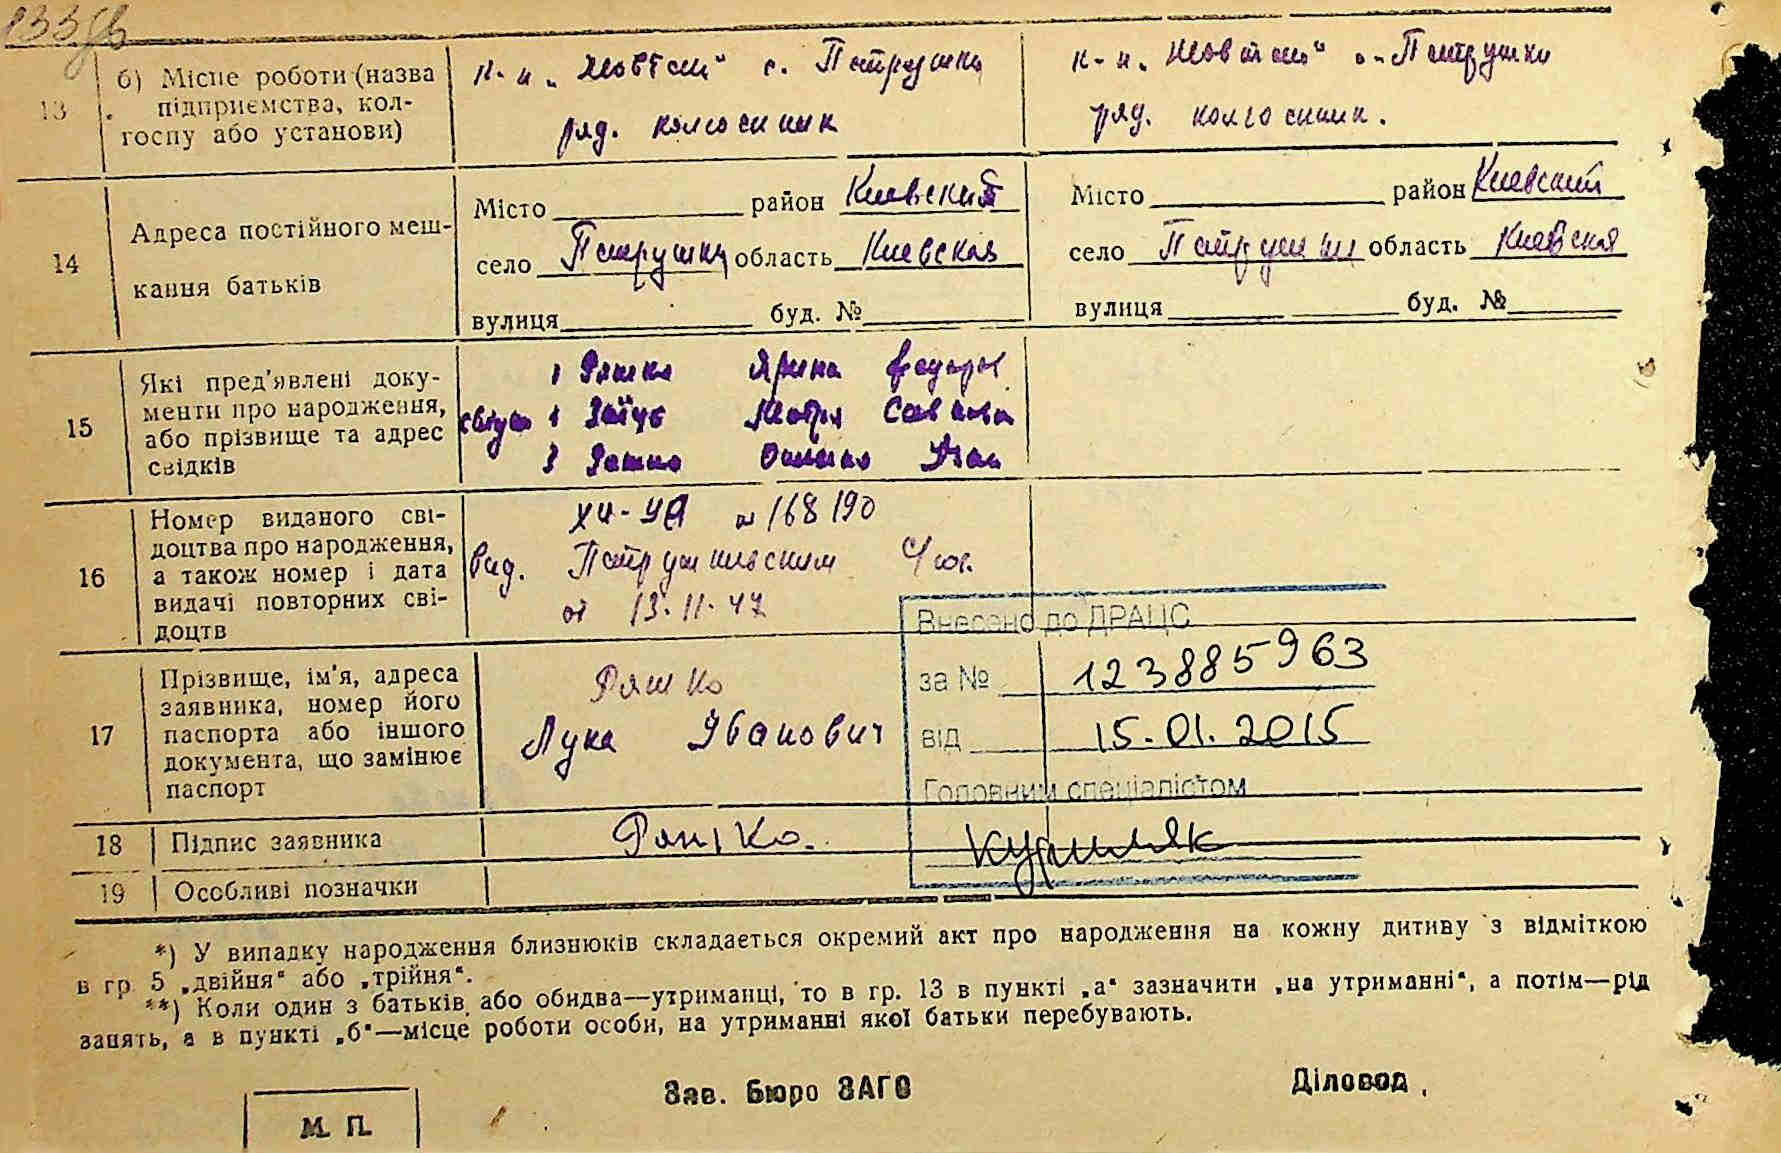 б) Місце роботи (назва
13 підприємства, кол-
госпу або установи)
к-п „Жовтень“ с. Петрушки
ряд. колгоспник
к-п „Жовтень“ с. Петрушки
ряд. колгоспник.
14 Адреса постійного меш-
кання батьків
Місто район Киевский
село Петрушки область Киевская
вулиця буд. №
Місто район Киевский
село Петрушки область Киевская
вулиця буд. №
15 Які пред'явлені доку-
менти про народження,
або прізвище та адрес
свідків
1 Ряшко Ярина
Заїць Мотря
3 Ряшко
16 Номер виданого сві-
доцтва про народження,
а також номер і дата
видачі повторних сві-
доцтв
№ 168190
вид. Петрушкивским
от 13.11.47
17 Прізвище, ім'я, адреса
заявника, номер його
паспорта або іншого
документа, що замінює
паспорт
Ряшко
Лука Іванович
Внесено до ДРАЦС
за № 123885963
від 15.01.2015
Головним спеціалістом
18 Підпис заявника
Ряшко.
19 Особливі позначки
*) У випадку народження близнюків складається окремий акт про народження на кожну дитину з відміткою
в гр. 5 „двійня“ або „трійня“.
**) Коли один з батьків, або обидва—утриманці, то в гр. 13 в пункті „а“ зазначити „на утриманні“, а потім—рід
занять, а в пункті „б“—місце роботи особи, на утриманні якої батьки перебувають.
Зав. Бюро ЗАГС
Діловод
М. П.